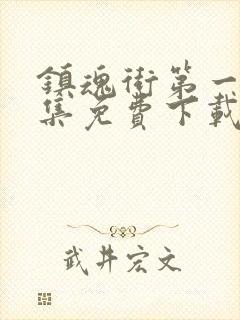 鎮魂街第一
集免費下載
武井宏文